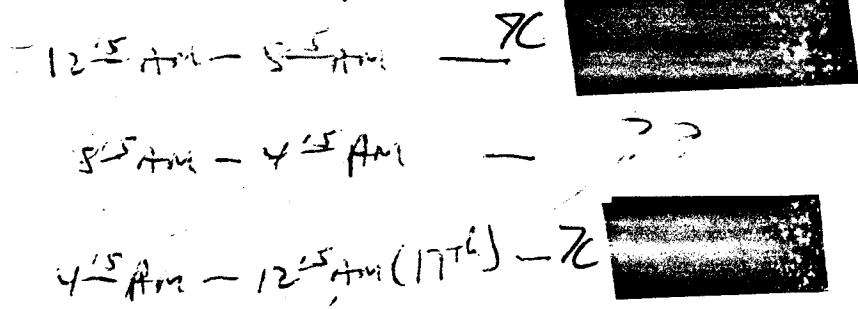 12 15 AM - 5 15 AM — 7C
5 15 AM - 4 15 AM — ??
4 15 AM - 12 15 AM (17th) - 7C